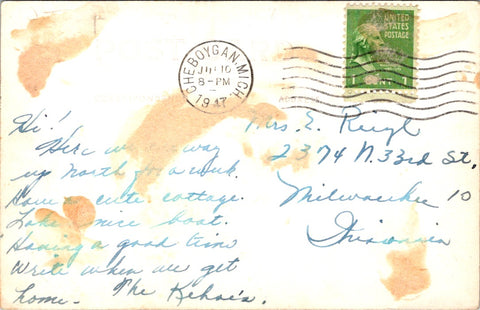 CHEBOYGAN, MICH.
JUL 10
8-PM
1947
UNITED STATES
POSTAGE
1
Hi!
Here we way
up north for a week.
Have a cute cottage.
Lake nice boat.
Having a good time
Write when we get
home - The Kehoe's.
Mrs. E. Reigl
2374 N. 33rd St,
Milwaukee 10
Wisconsin